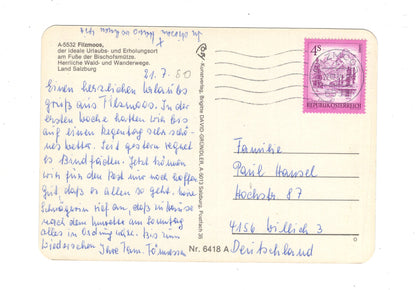 A-5532 Filzmoos,
der ideale Urlaubs- und Erholungsort
am Fuße der Bischofsmütze.
Herrliche Wald- und Wanderwege.
Land Salzburg
21. 7. 80
Einen herzlichen Urlaubs
gruß aus Filzmoos. In der
ersten Woche hatten wir bis
auf einen Regentag sehr schö-
nes Wetter. Seit gestern regnet
es Bindfäden. Jetzt können
wir für den Rest nur noch hoffen
Gut, daß es allen so geht. Ihre
Schwägerin rief an, daß zuhause
nach dem Unwetter am Sonntag
alles in Ordnung wäre. Bis zum
Wiedersehen Ihre Fam.
Kunstverlag, Brigitte DAVID-GRÜNDLER, A 5013 Salzburg, Postfach 35
Nr. 6418 A
4 S
REPUBLIK ÖSTERREICH
Familie
Paul Hansel
Hochstr. 87
4156 Willich 3
Deutschland